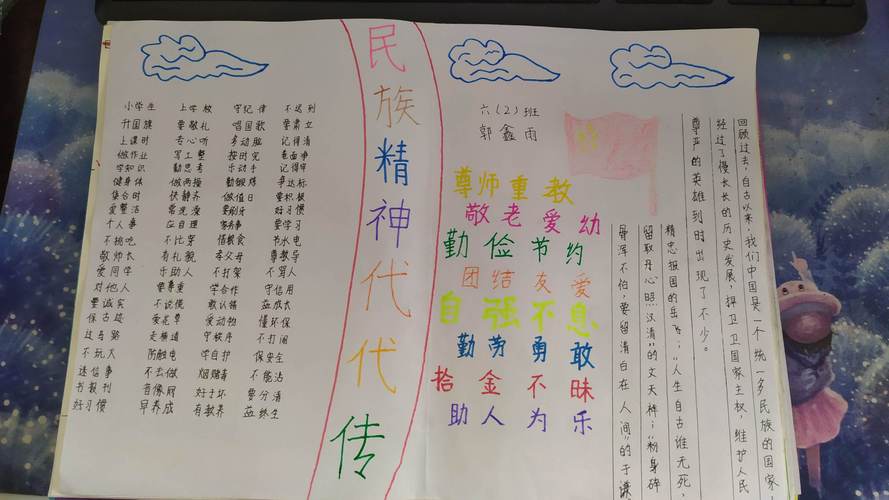 小学生 上学校 守纪律 不迟到
升国旗 要敬礼 唱国歌 要肃立
上课时 专心听 多动脑 记得清
做作业 写工整 按时完 卷面净
学知识 勤思考 乐动手 记得牢
健身体 做两操 勤锻炼 争达标
集合时 快静齐 做值日 要积极
爱整洁 常洗澡 要刷牙 好习惯
个人事 应自理 家务事 要学习
不挑吃 不比穿 惜粮食 节水电
敬师长 有礼貌 孝父母 尊教导
爱同学 乐助人 不打架 不骂人
对他人 要尊重 学合作 守信用
要诚实 不说慌 敢认错 益成长
保古迹 爱花草 爱动物 懂环保
过马路 走横道 守秩序 不打闹
不玩火 防触电 学自护 保安全
迷信事 不去做 烟赌毒 不能沾
书报刊 音像厨 好于坏 要分清
好习惯 早养成 有教养 益终生
民族精神代代传
六(2)班
郭鑫雨
尊师重教
敬老爱幼
勤俭节约
团结友爱
自强不息
勤劳勇敢
拾金不昧
助人为乐
回顾过去,自古以来,我们中国是一个统一多民族的国家
经过了慢长长的历史发展,捍卫卫国家主权,维护人民
尊严的英雄到时出现了不少。
精忠报国的岳飞;"人生自古谁无死,
留取丹心照汉清"的文天祥;"粉身碎
骨浑不怕,要留清白在人间"的于谦